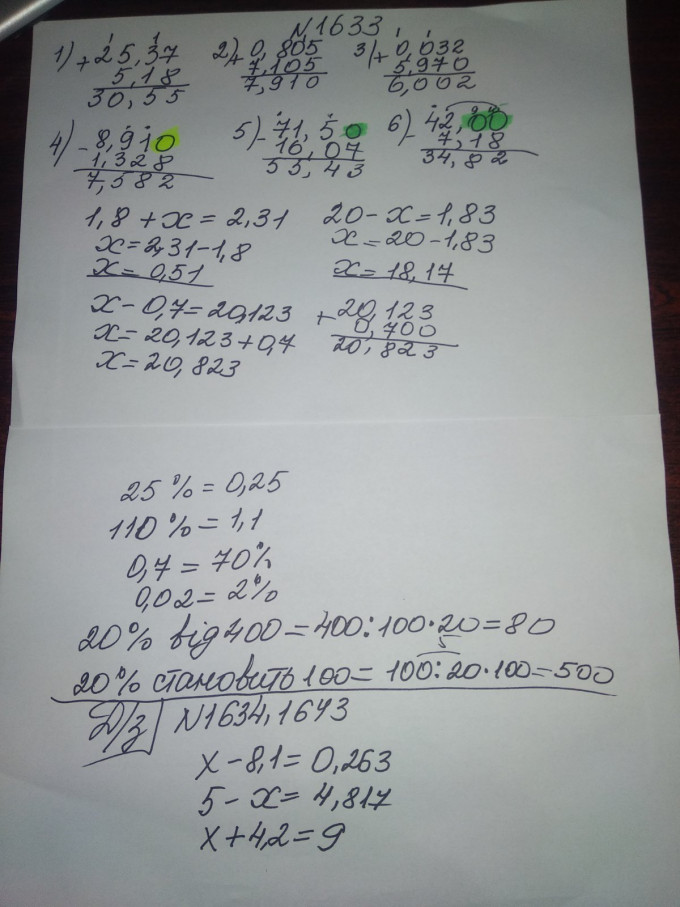 N1633
1) + 25,37 2) + 0,805 3) + 0,032
5,18 7,105 5,970
30,55 7,910 6,002
4) - 8,910 5) - 71,50 6) - 42,00
1,328 16,07 7,18
7,582 55,43 34,82
1,8 + x = 2,31 20 - x = 1,83
x = 2,31 - 1,8 x = 20 - 1,83
x = 0,51 x = 18,17
x - 0,7 = 20,123 + 20,123
x = 20,123 + 0,7 0,700
x = 20,823 20,823
25% = 0,25
110% = 1,1
0,7 = 70%
0,02 = 2%
20% від 400 = 400 : 100 · 20 = 80
5
20% становить 100 = 100 : 20 · 100 = 500
Д/з N1634, 1643
x - 8,1 = 0,263
5 - x = 4,817
x + 4,2 = 9